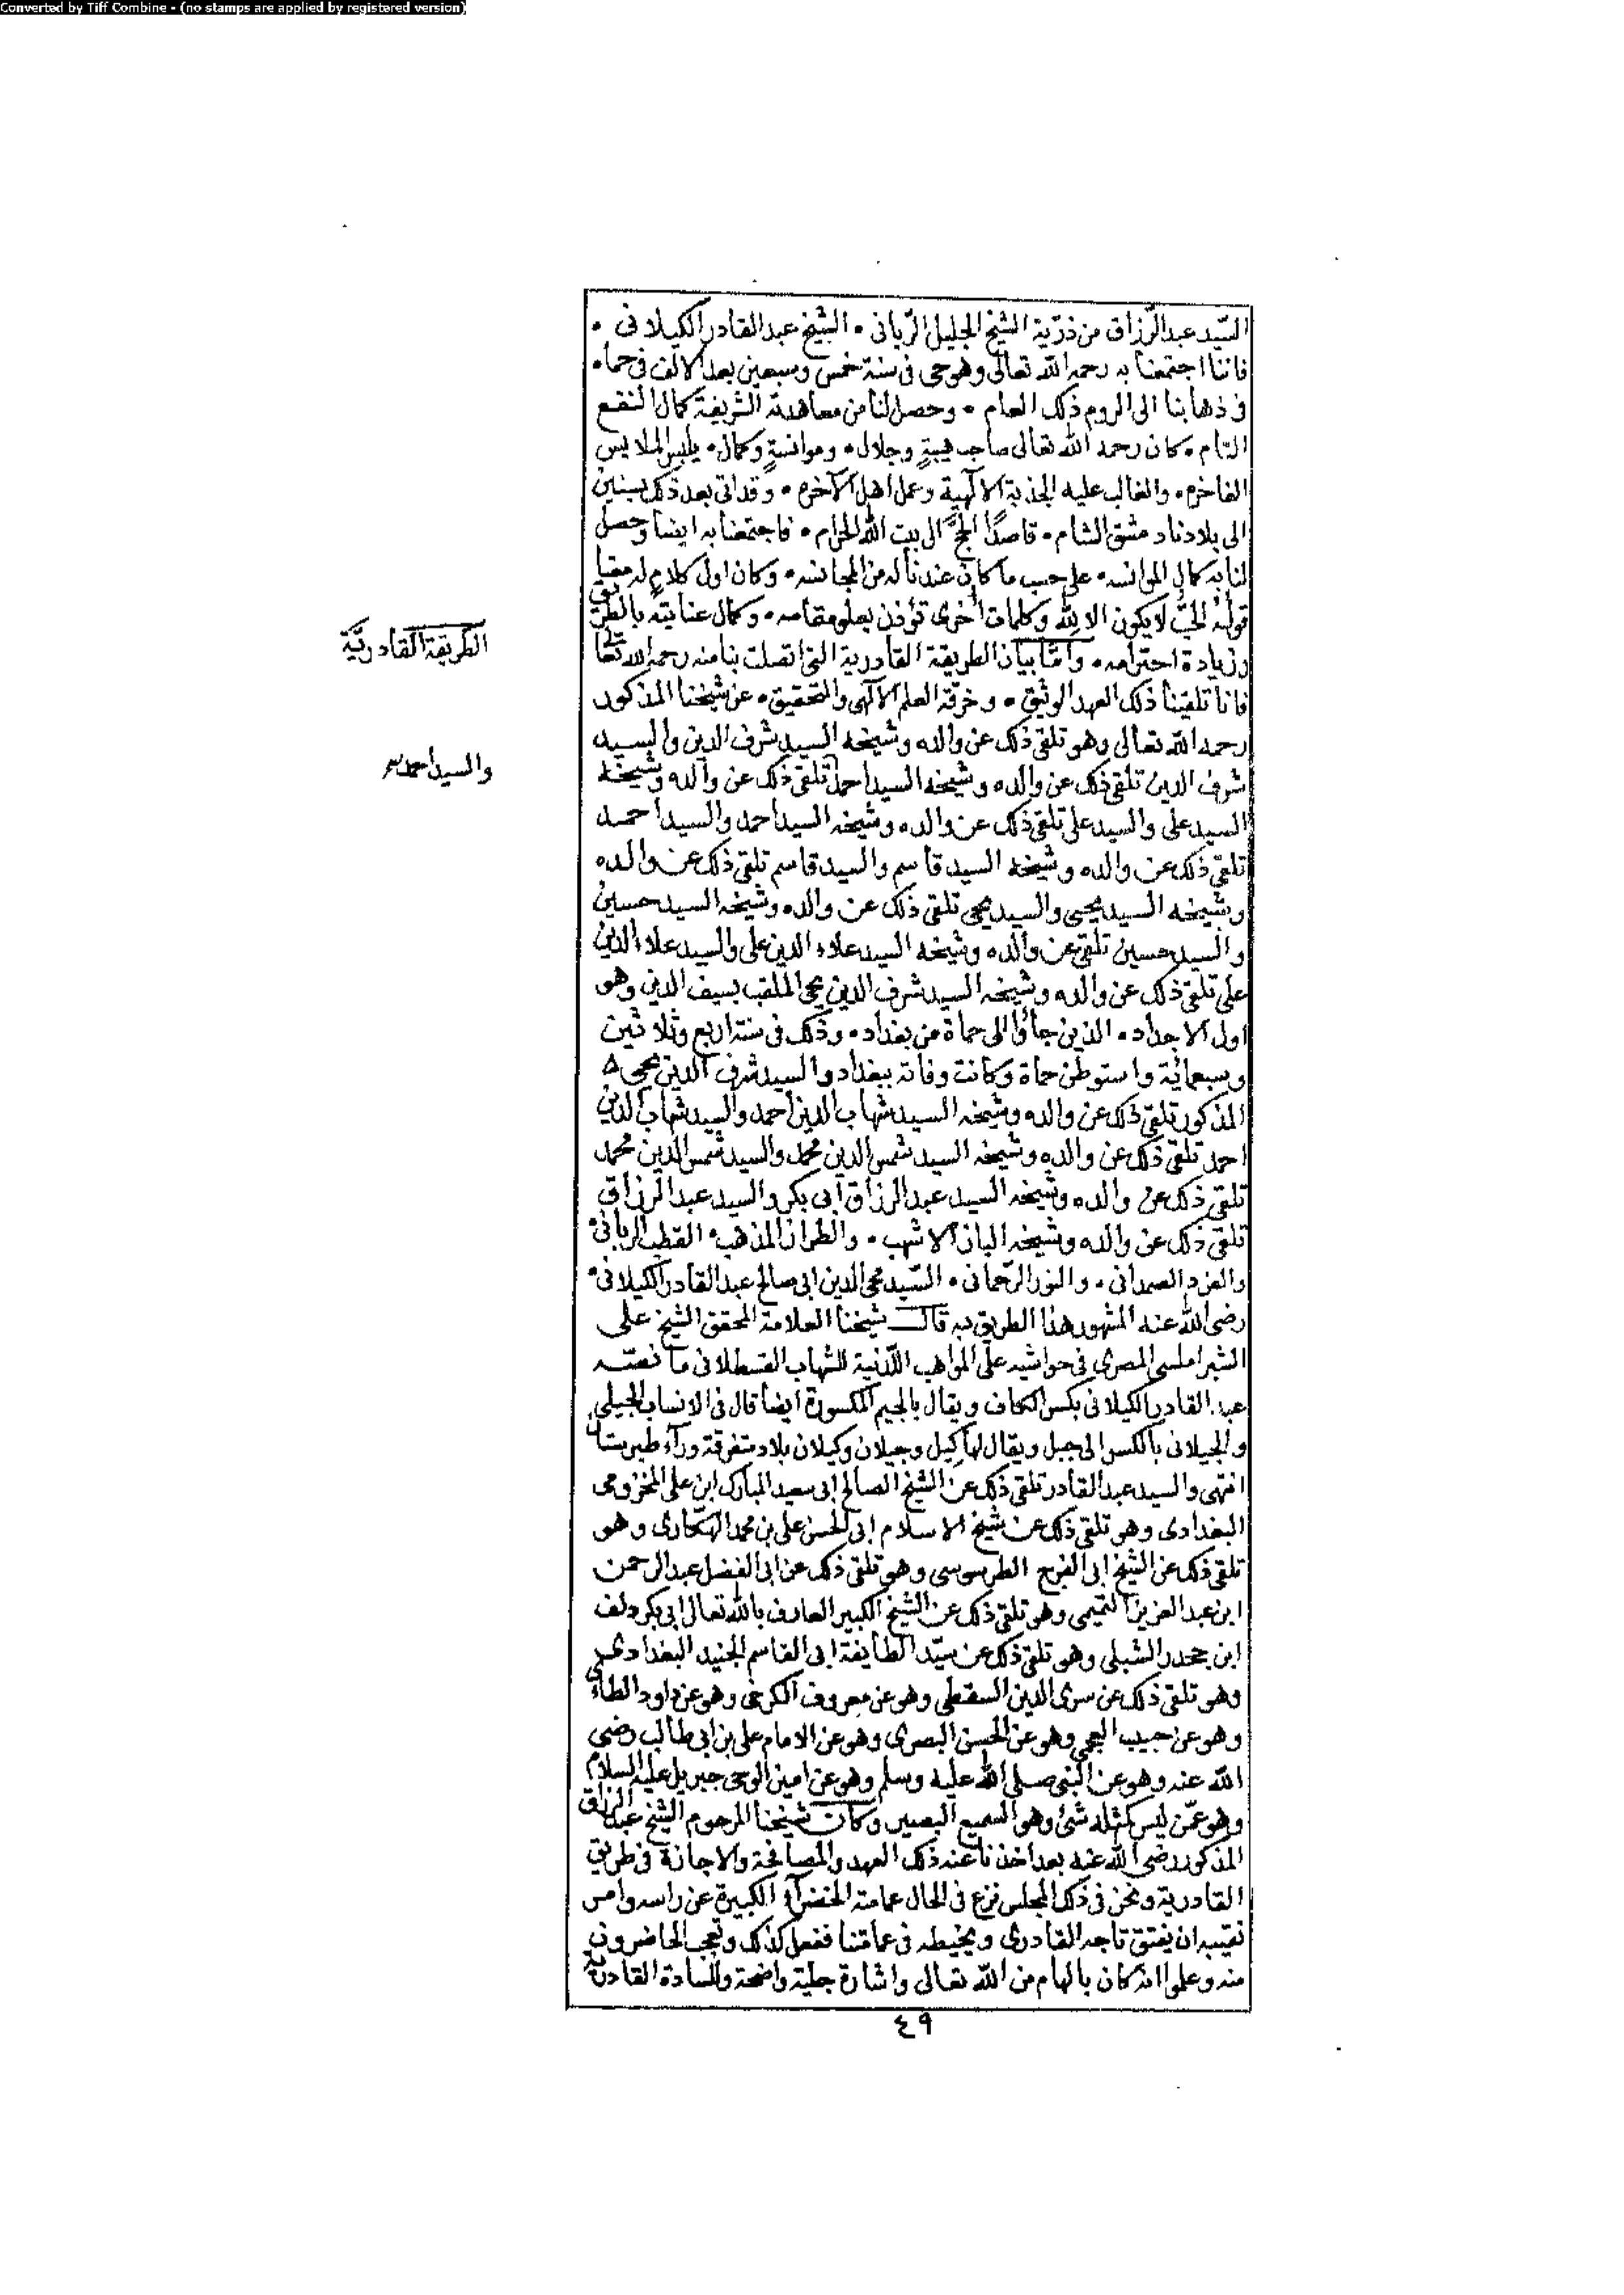 Converted by Tiff Combine - (no stamps are applied by registered version)
السيّد عبد الرّزاق من ذرّية الشيخ الجليل الرّبانى • الشيخ عبد القادر الكيلانى •
فاننا اجتمعنا به رحمه الله تعالى وهو حى فى سنة خمس وسبعين بعد الالف فى حماه
فى ذهابنا الى الروم ذلك العام • وحصل لنا من معاهدته الشريفة كمال النفع
التام • كان رحمه الله تعالى صاحب هيبةٍ وجلال • وموانسةٍ وكمال • يلبس الملابس
الفاخره • والغالب عليه الجذبة الالٓهية وعمل اهل الآخره • وقد اتى بعد ذلك بسنين
الى بلادنا دمشق الشام • قاصدًا الحجّ الى بيت الله الحرام • فاجتمعنا به ايضا وحصل
لنا به كمال الموانسه • على حسب ما كان عندنا له من المجانسه • وكان اول كلام له معنا
قوله الحبّ لا يكون الا لله وكلمات اخرى تؤذن بعلو مقامه • وكمال عنايته بالطريق
وزيادة احترامه • وأمّا بيان الطريقة القادرية التى اتصلت بنا منه رحمه الله تعالى
فانا تلقينا ذلك العهد الوثيق • وخرقة العلم الالٓهى والتحقيق • عن شيخنا المذكور
رحمه الله تعالى وهو تلقى ذلك عن والده وشيخه السيد شرف الدين والسيد
شرف الدين تلقى ذلك عن والده وشيخه السيد احمد تلقى ذلك عن والده وشيخه
السيد على والسيد على تلقى ذلك عن والده وشيخه السيد احمد والسيد احمد
تلقى ذلك عن والده وشيخه السيد قاسم والسيد قاسم تلقى ذلك عن والده
وشيخه السيد يحيى والسيد يحيى تلقى ذلك عن والده وشيخه السيد حسين
والسيد حسين تلقى عن والده وشيخه السيد علاء الدين على والسيد علاء الدين
على تلقى ذلك عن والده وشيخه السيد شرف الدين يحيى الملقب بسيف الدين وهو
اول الاجداد • الذين جاؤا الى حماة من بغداد • وذلك فى سنة اربع وثلاثين
وسبعمائة واستوطن حماة وكانت وفاته ببغداد والسيد شرف الدين يحيى
المذكور تلقى ذلك عن والده وشيخه السيد شهاب الدين احمد والسيد شهاب الدين
احمد تلقى ذلك عن والده وشيخه السيد شمس الدين محمد والسيد شمس الدين محمد
تلقى ذلك عن والده وشيخه السيد عبد الرزاق ابى بكر والسيد عبد الرزاق
تلقى ذلك عن والده وشيخه الباز الاشهب • والطراز المذهب • القطب الربانى •
والفرد الصمدانى • والنور الرّحمانى • السّيد محيى الدين ابى صالح عبد القادر الكيلانى •
رضى الله عنه المشهور هذا الطريق به قال شيخنا العلامة المحقق الشيخ على
الشبراملسى المصرى فى حواشيه على المواهب اللّدنية للشهاب القسطلانى ما نصّه
عبد القادر الكيلانى بكسر الكاف ويقال بالجيم المكسورة ايضا قال فى الانساب الجيلى
والجيلانى بالكسر الى جيل ويقال لها كيل وجيلان وكيلان بلاد متفرقة ورآء طبرستان
انتهى والسيد عبد القادر تلقى ذلك عن الشيخ الصالح ابى سعيد المبارك ابن على المخزومى
البغدادى وهو تلقى ذلك عن شيخ الاسلام ابى الحسن على بن محمد الهكّارى وهو
تلقى ذلك عن الشيخ ابى الفرج الطرسوسى وهو تلقى ذلك عن ابى الفضل عبد الرحمن
ابن عبد العزيز التميمى وهو تلقى ذلك عن الشيخ الكبير العارف بالله تعالى ابى بكر دلف
ابن جحدر الشبلى وهو تلقى ذلك عن سيّد الطايفة ابى القاسم الجنيد البغدادى
وهو تلقى ذلك عن سرى الدين السقطى وهو عن معروف الكرخى وهو عن داود الطائى
وهو عن حبيب العجمى وهو عن الحسن البصرى وهو عن الامام على بن ابى طالب رضى
الله عنه وهو عن النبى صلى الله عليه وسلم وهو عن امين الوحى جبريل عليه السلام
وهو عمّن ليس كمثله شئ وهو السميع البصير وكان شيخنا المرحوم الشيخ عبد الرزاق
المذكور رضى الله عنه بعد اخذنا عنه ذلك العهد والمصافحة والاجازة فى طريق
القادرية ونحن فى ذلك المجلس نزع فى الحال عمامته الخضرآء الكبيرة عن راسه وامر
نقيبه ان يفتق تاجه القادرى ويخيطه فى عمامتنا ففعل كذلك وتعجب الحاضرون
منه وعلموا انه كان بالهام من الله تعالى واشارة جلية واضحة والسادة القادرية
الطريقة القادريّة
والسيد احمد صح
٤٩